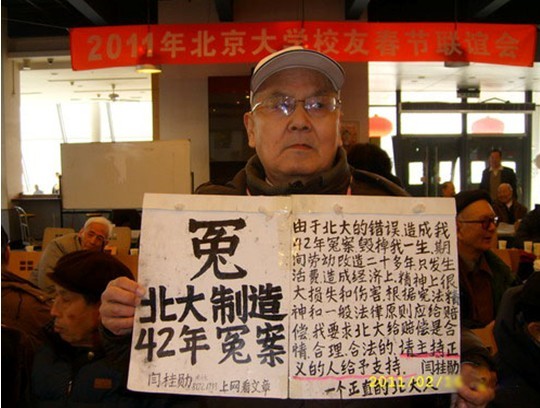 2011年北京大学校友春节联谊会
冤
北大制造
42年冤案
闫桂勋
上网看文章
由于北大的错误造成我
42年冤案毁掉我一生,期
间劳动改造二十多年只发生
活费造成经济上,精神上很
大损失和伤害,根据宪法精
神和一般法律原则应给赔
偿,我要求北大给赔偿是合
情,合理,合法的,请主持正
义的人给予支持. 闫桂勋
一个正直的北大人
2011/02/